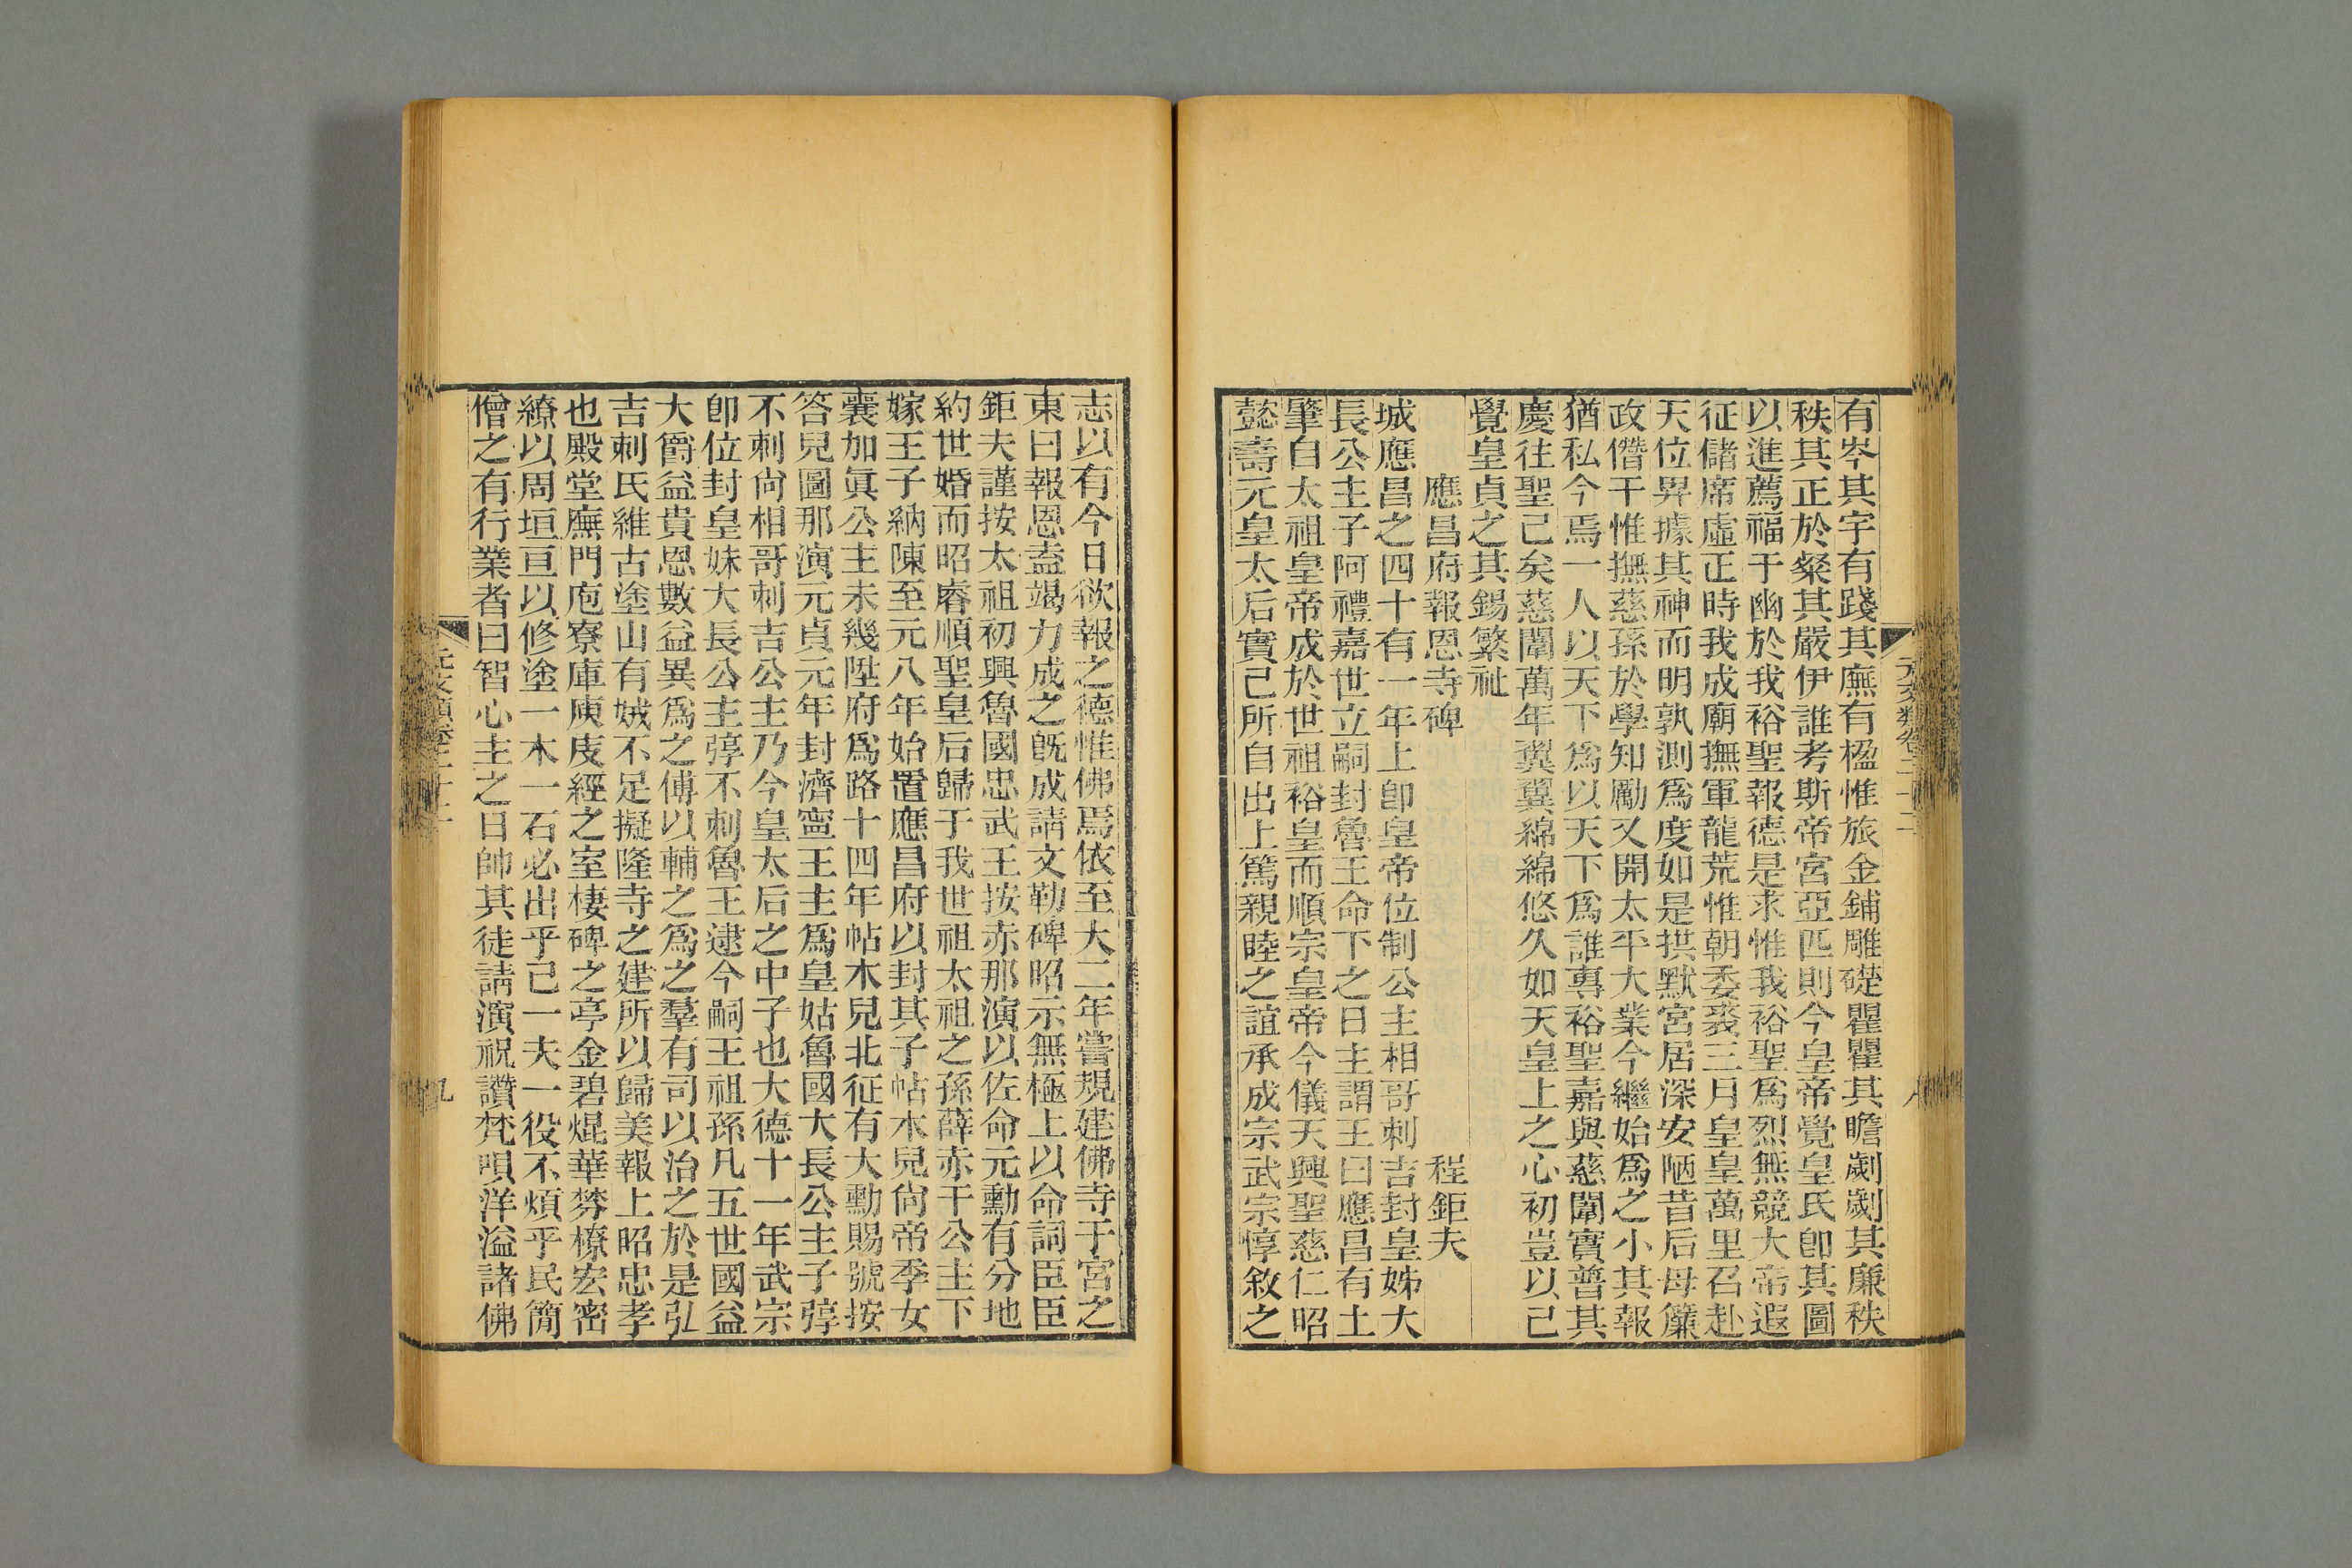 元文類卷二十二
有岑其宇有踐其廡有楹惟旅金鋪雕礎瞿瞿其瞻劌劌其廉秩
秩其正於粲其嚴伊誰考斯帝宮亞匹則今皇帝覺皇氏卽其圖
以進薦福于幽於我裕聖報德是求惟我裕聖爲烈無競大帝遐
征儲席虛正時我成廟撫軍龍荒惟朝委裘三月皇皇萬里召赴
天位畀據其神而明孰測爲度如是拱默宮居深安陋昔后母簾
政僭干惟撫慈孫於學知勵又開太平大業今繼始爲之小其報
猶私今焉一人以天下爲以天下爲誰專裕聖嘉與慈闈實普其
慶往聖已矣慈闈萬年翼翼綿綿悠久如天皇上之心初豈以己
覺皇貞之其錫繁祉
應昌府報恩寺碑 程鉅夫
城應昌之四十有一年上卽皇帝位制公主相哥刺吉封皇姊大
長公主子阿禮嘉世立嗣封魯王命下之日主謂王曰應昌有土
肇自太祖皇帝成於世祖裕皇而順宗皇帝今儀天興聖慈仁昭
懿壽元皇太后實己所自出上篤親睦之誼承成宗武宗惇敘之
志以有今日欲報之德惟佛焉依至大二年嘗規建佛寺于宮之
東曰報恩盍竭力成之旣成請文勒碑昭示無極上以命詞臣臣
鉅夫謹按太祖初興魯國忠武王按赤那演以佐命元勳有分地
約世婚而昭睿順聖皇后歸于我世祖太祖之孫薛赤干公主下
嫁王子納陳至元八年始置應昌府以封其子帖木兒尙帝季女
囊加眞公主未幾陞府爲路十四年帖木兒北征有大勳賜號按
答兒圖那演元貞元年封濟寧王主爲皇姑魯國大長公主子䔲
不刺尙相哥刺吉公主乃今皇太后之中子也大德十一年武宗
卽位封皇妹大長公主䔲不刺魯王逮今嗣王祖孫凡五世國益
大爵益貴恩數益異爲之傅以輔之爲之羣有司以治之於是弘
吉刺氏維古塗山有娀不足擬隆寺之建所以歸美報上昭忠孝
也殿堂廡門庖寮庫庾庋經之室棲碑之亭金碧焜華棼橑宏密
繚以周垣亘以修塗一木一石必出乎己一夫一役不煩乎民簡
僧之有行業者曰智心主之日帥其徒請演祝讚梵唄洋溢諸佛